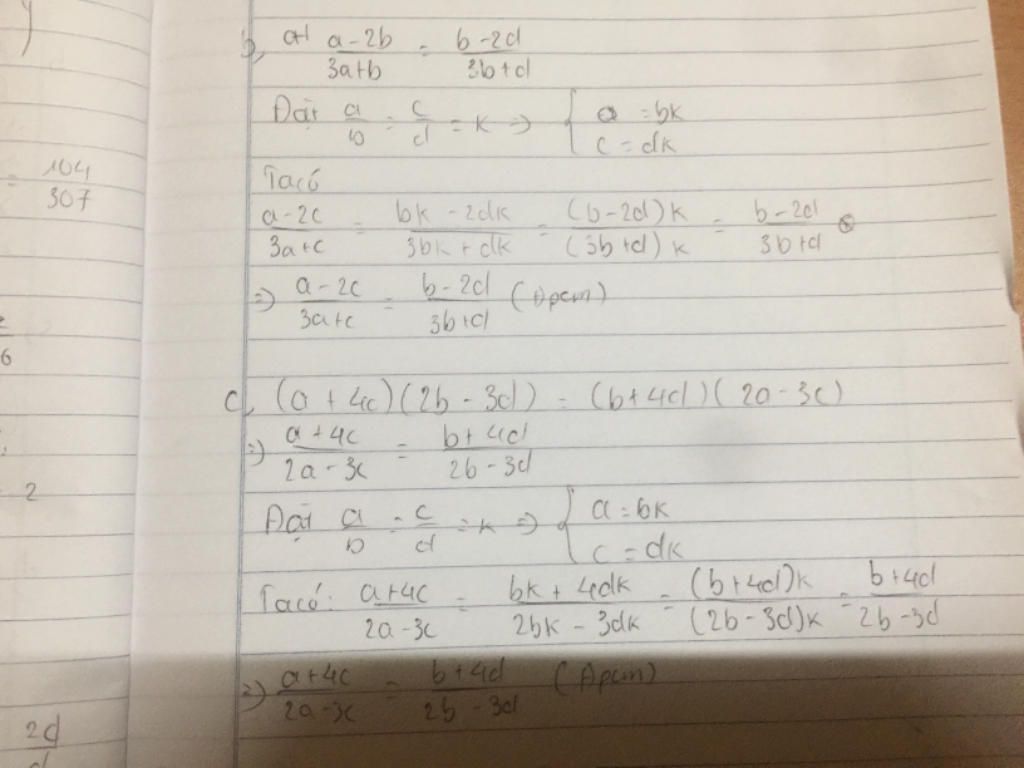 b, a-2b/3a+b = b-2d/3b+d
Đặt a/b = c/d = k => { a = bk
c = dk
= 104/307
Ta có
a-2c/3a+c = bk-2dk/3bk+dk = (b-2d)k/(3b+d)k = b-2d/3b+d
=> a-2c/3a+c = b-2d/3b+d (Đpcm)
6
c, (a+4c)(2b-3d) = (b+4d)(2a-3c)
=> a+4c/2a-3c = b+4d/2b-3d
2
Đặt a/b = c/d = k => { a = bk
c = dk
Ta có: a+4c/2a-3c = bk+4dk/2bk-3dk = (b+4d)k/(2b-3d)k = b+4d/2b-3d
=> a+4c/2a-3c = b+4d/2b-3d (Đpcm)
2d